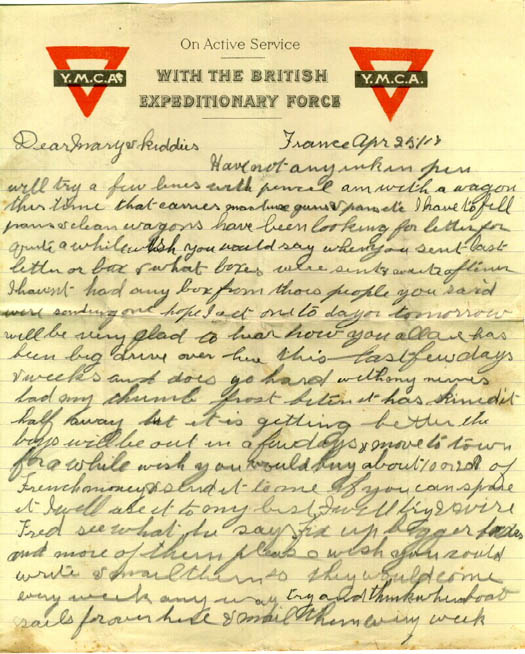 On Active Service
Y.M.C.A.
WITH THE BRITISH
EXPEDITIONARY FORCE
Y.M.C.A.
Dear Mary & kiddies
France Apr 25/18
Have not any ink in pen
will try a few lines with pencil am with a wagon
this time that carries machine guns & pans etc I have to fill
pans & clean wagons have been looking for letter for
quite a while wish you would say when you sent last
letter or box & what boxes were sent & write oftener
I havent had any box from those people you said
were sending one hope I get one to day or tomorrow
will be very glad to hear how you all are has
been big drive over here this last few days
& weeks and does go hard with my nerves
had my thumb frost biten it has skinned it
half away but it is getting better the
boys will be out in a few days & move to town
for a while wish you would buy about 10 or 20 $ of
French money & send it to me if you can spare
it I will use it to my best I will try & wire
Fred see what he say Fix up bigger boxes
and more of them please wish you could
write & mail them so they would come
every week any way try and think when boat
sails for over here & mail them every week